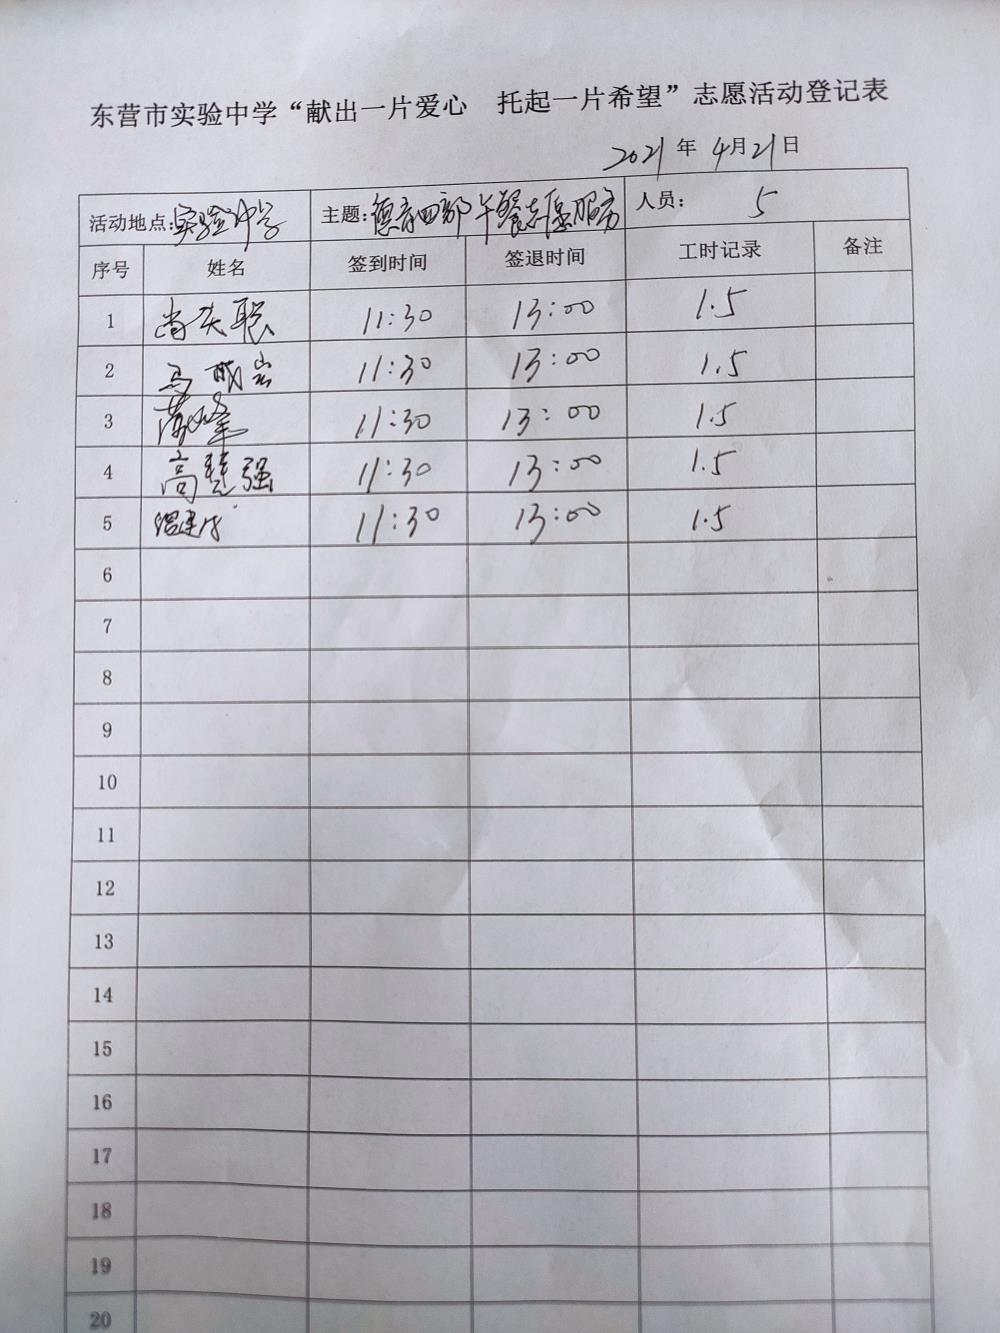 东营市实验中学“献出一片爱心 托起一片希望”志愿活动登记表
2021年 4月21日
活动地点:实验中学 主题:德育四部午餐志愿服务 人员: 5
序号 姓名 签到时间 签退时间 工时记录 备注
1 11:30 13:00 1.5
2 马成岩 11:30 13:00 1.5
3 11:30 13:00 1.5
4 高楚强 11:30 13:00 1.5
5 11:30 13:00 1.5
6
7
8
9
10
11
12
13
14
15
16
17
18
19
20